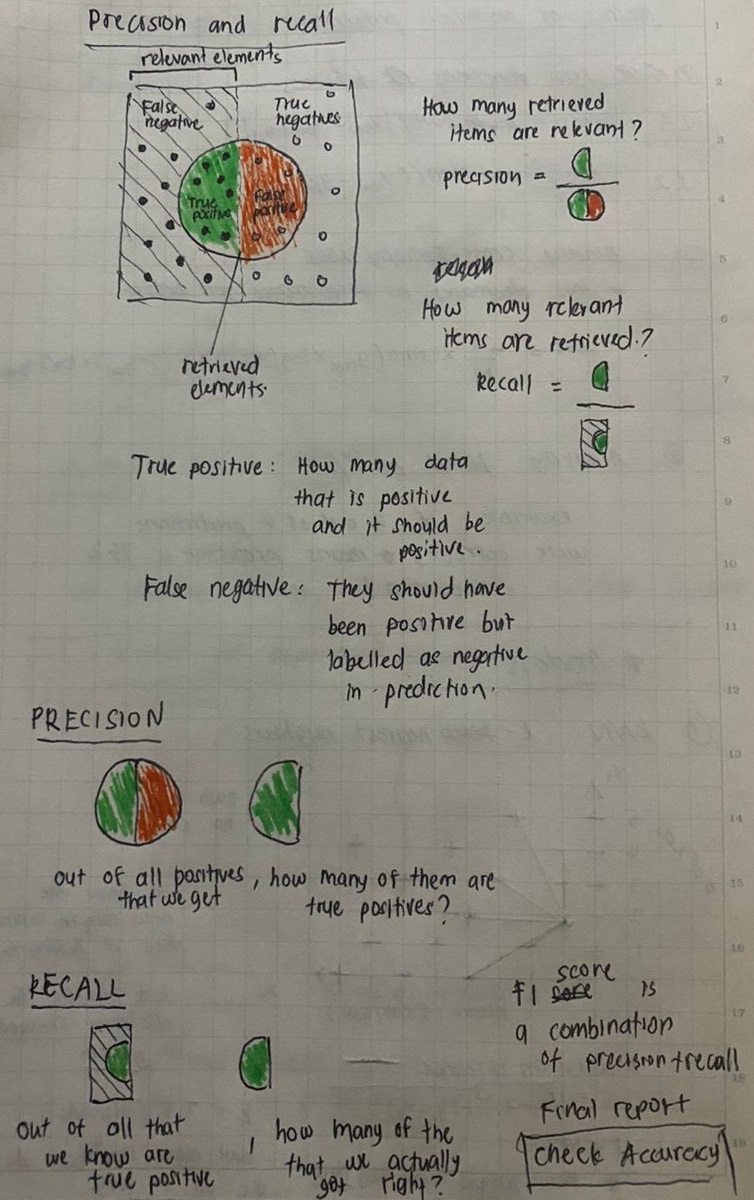 Precision and recall
relevant elements
False
negative
True
negatives
True
positive
False
positive
retrieved
elements.
How many retrieved
items are relevant?
precision =
How many relevant
items are retrieved.?
Recall =
True positive: How many data
that is positive
and it should be
positive.
False negative: They should have
been positive but
labelled as negative
in prediction.
PRECISION
out of all positives, how many of them are
that we get true positives?
RECALL
out of all that
we know are
true positive
, how many of the
that we actually
got right?
F1 score is
a combination
of precision + recall
Final report
Check Accuracy
1
2
3
4
5
6
7
8
9
10
11
12
13
14
15
16
17
18
19